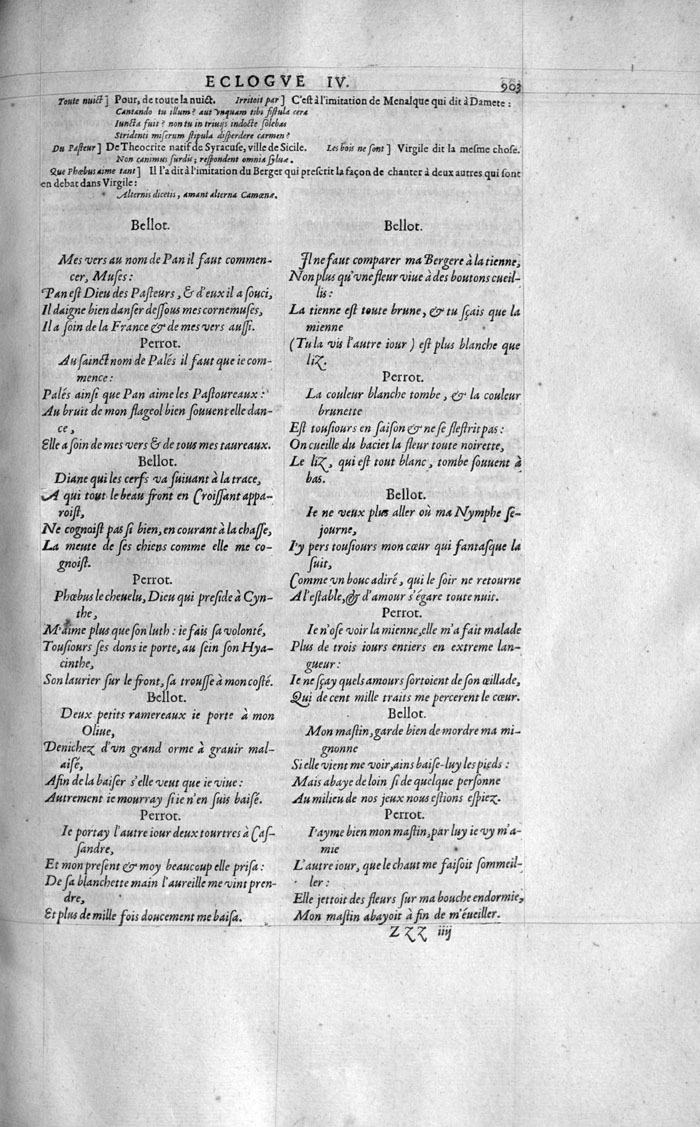 ECLOGVE IV. 903
Toute nuict] Pour, de toute la nuict. Irritoit par] C'est à l'imitation de Menalque qui dit à Damete :
Cantando tu illum? aut vnquam tibi fistula cera
Iuncta fuit? non tu in triuijs indocte solebas
Stridenti miserum stipula disperdere carmen?
Du Pasteur] De Theocrite natif de Syracuse, ville de Sicile. Les bois ne sont] Virgile dit la mesme chose.
Non canimus surdis; respondent omnia syluæ.
Que Phœbus aime tant] Il l'a dit à l'imitation du Berger qui prescrit la façon de chanter à deux autres qui sont
en debat dans Virgile :
Alternis dicetis, amant alterna Camœnæ.
Bellot.
Mes vers au nom de Pan il faut commen-
cer, Muses :
Pan est Dieu des Pasteurs, & d'eux il a souci,
Il daigne bien danser dessous mes cornemuses,
Il a soin de la France & de mes vers aussi.
Perrot.
Au sainct nom de Palés il faut que ie com-
mence :
Palés ainsi que Pan aime les Pastoureaux :
Au bruit de mon flageol bien souuent elle dan-
ce,
Elle a soin de mes vers & de tous mes taureaux.
Bellot.
Diane qui les cerfs va suiuant à la trace,
A qui tout le beau front en Croissant appa-
roist,
Ne cognoist pas si bien, en courant à la chasse,
La meute de ses chiens comme elle me co-
gnoist.
Perrot.
Phœbus le cheuelu, Dieu qui preside à Cyn-
the,
M'aime plus que son luth : ie fais sa volonté,
Tousiours ses dons ie porte, au sein son Hya-
cinthe,
Son laurier sur le front, sa trousse à mon costé.
Bellot.
Deux petits ramereaux ie porte à mon
Oliue,
Denichez d'vn grand orme à grauir mal-
aisé,
Afin de la baiser s'elle veut que ie viue :
Autrement ie mourray si ie n'en suis baisé.
Perrot.
Ie portay l'autre iour deux tourtres à Cas-
sandre,
Et mon present & moy beaucoup elle prisa :
De sa blanchette main l'aureille me vint pren-
dre,
Et plus de mille fois doucement me baisa.
Bellot.
Il ne faut comparer ma Bergere à la tienne,
Non plus qu'vne fleur viue à des boutons cueil-
lis :
La tienne est toute brune, & tu sçais que la
mienne
(Tu la vis l'autre iour) est plus blanche que
liz.
Perrot.
La couleur blanche tombe, & la couleur
brunette
Est tousiours en saison & ne se flestrit pas :
On cueille du baciet la fleur toute noirette,
Le liz, qui est tout blanc, tombe souuent à
bas.
Bellot.
Ie ne veux plus aller où ma Nymphe se-
journe,
I'y pers tousiours mon cœur qui fantasque la
suit,
Comme vn bouc adiré, qui le soir ne retourne
A l'estable, & d'amour s'égare toute nuit.
Perrot.
Ie n'ose voir la mienne, elle m'a fait malade
Plus de trois iours entiers en extreme lan-
gueur :
Ie ne sçay quels amours sortoient de son œillade,
Qui de cent mille traits me percerent le cœur.
Bellot.
Mon mastin, garde bien de mordre ma mi-
gnonne
Si elle vient me voir, ains baise-luy les pieds :
Mais abaye de loin si de quelque personne
Au milieu de nos jeux nous estions espiez.
Perrot.
I'ayme bien mon mastin, par luy ie vy m'a-
mie
L'autre iour, que le chaut me faisoit sommeil-
ler :
Elle jettoit des fleurs sur ma bouche endormie,
Mon mastin abayoit à fin de m'éueiller.
ZZZ iiij